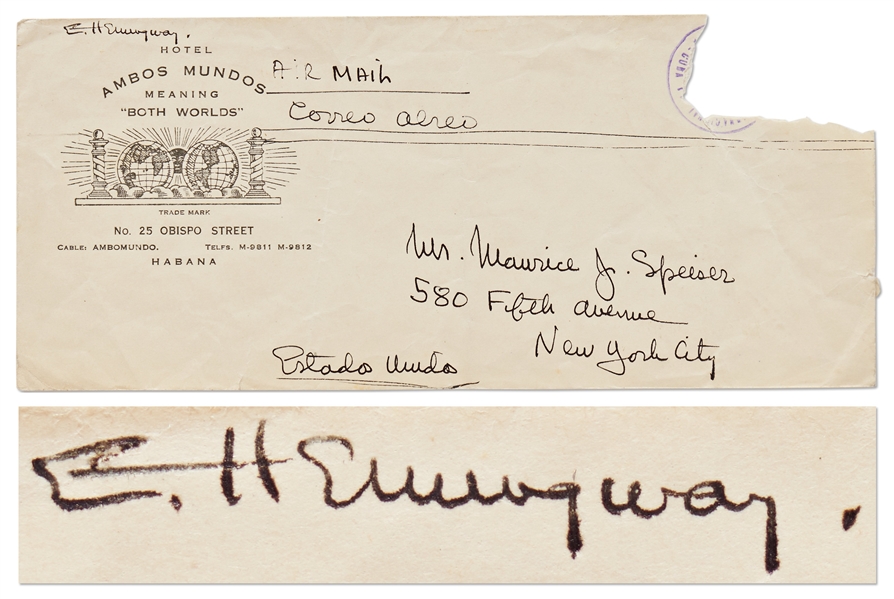 E. Hemingway.
HOTEL
AMBOS MUNDOS
MEANING
"BOTH WORLDS"
TRADE MARK
No. 25 OBISPO STREET
CABLE: AMBOMUNDO. TELFS. M-9811 M-9812
HABANA
AIR MAIL
Correo aereo
CUBA
Mr. Maurice J. Speiser
580 Fifth avenue
New York City
Estados Unidos
E. HEmingway.